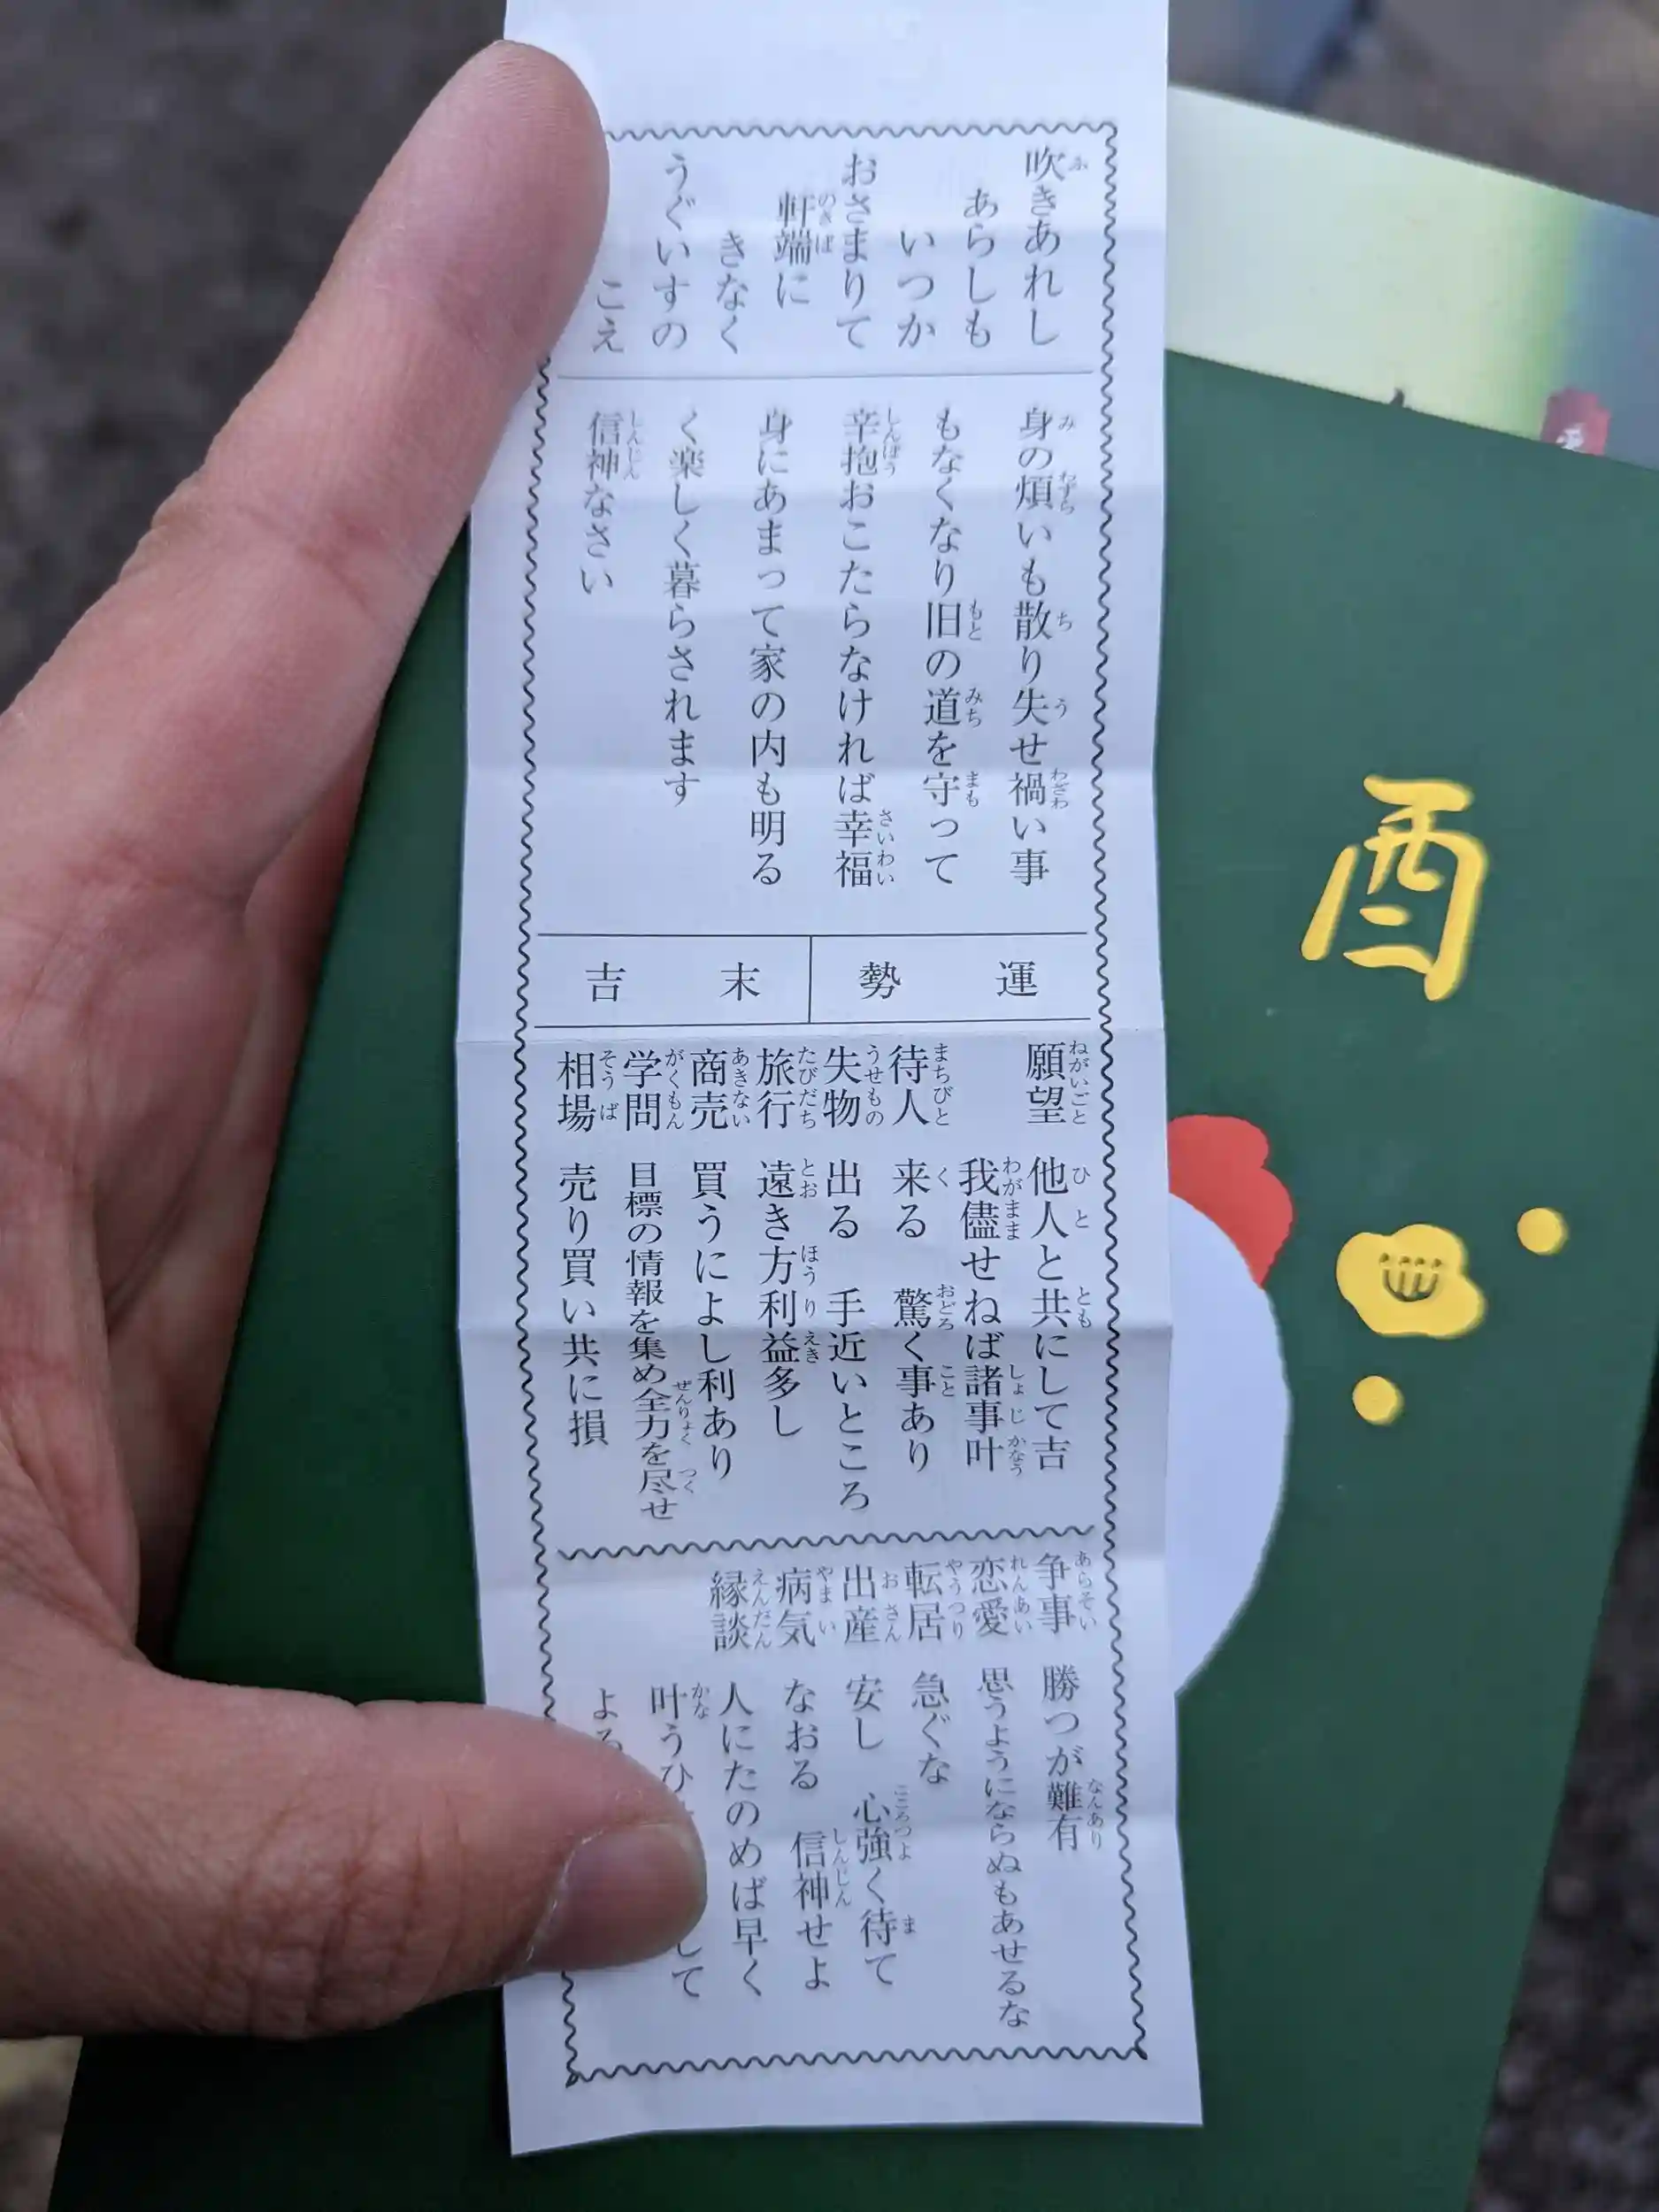 吹きあれし
あらしも
いつか
おさまりて
軒端に
きなく
うぐいすの
こえ
身の煩いも散り失せ禍い事
もなくなり旧の道を守って
辛抱おこたらなければ幸福
身にあまって家の内も明る
く楽しく暮らされます
信神なさい
運勢 末吉
願望 他人と共にして吉
我儘せねば諸事叶
待人 来る 驚く事あり
失物 出る 手近いところ
旅行 遠き方利益多し
商売 買うによし利あり
学問 目標の情報を集め全力を尽せ
相場 売り買い共に損
争事 勝つが難有
恋愛 思うようにならぬもあせるな
転居 急ぐな
出産 安し 心強く待て
病気 なおる 信神せよ
縁談 人にたのめば早く
叶うひ して
よる
酉